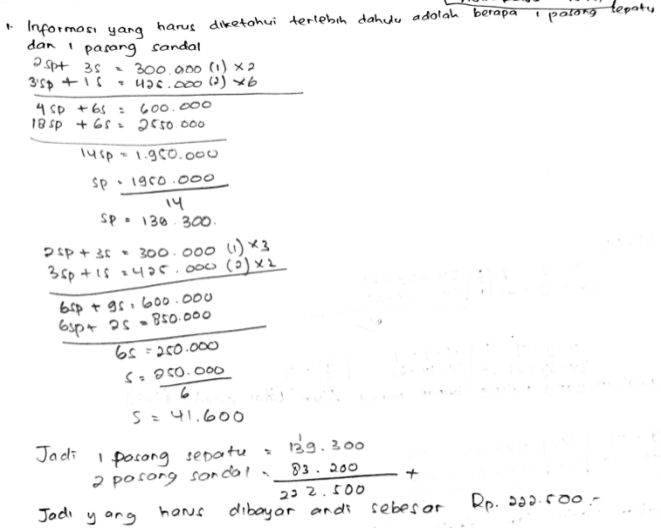 1. Informasi yang harus diketahui terlebih dahulu adalah berapa 1 pasang sepatu
dan 1 pasang sandal
2sp + 3s = 300.000 (1) ×2
3sp + 1s = 425.000 (2) ×6
4sp + 6s = 600.000
18sp + 6s = 2550.000
14sp = 1.950.000
sp = 1950.000
14
sp = 139.300.
2sp + 3s = 300.000 (1) ×3
3sp + 1s = 425.000 (2) ×2
6sp + 9s = 600.000
6sp + 2s = 850.000
6s = 250.000
s = 250.000
6
s = 41.600
Jadi 1 pasang sepatu = 139.300
2 pasang sandal = 83.200 +
222.500
Jadi yang harus dibayar andi sebesar Rp. 222.500,-